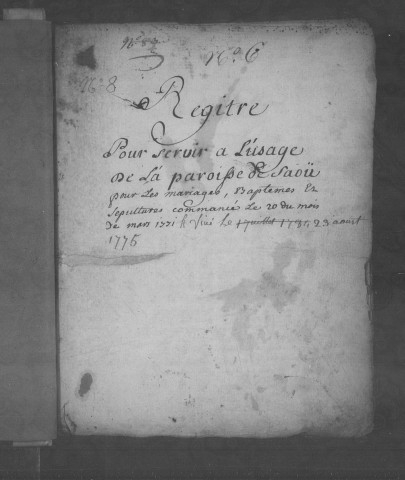 N° 6
N° 8
Regitre
Pour servir a L'usage
De La paroisse De Saoü
pour Les mariages, Baptemes Et
sepultures commancé Le 20 du mois
de mars 1771 & fini Le 1 juillet 23 aout
1775